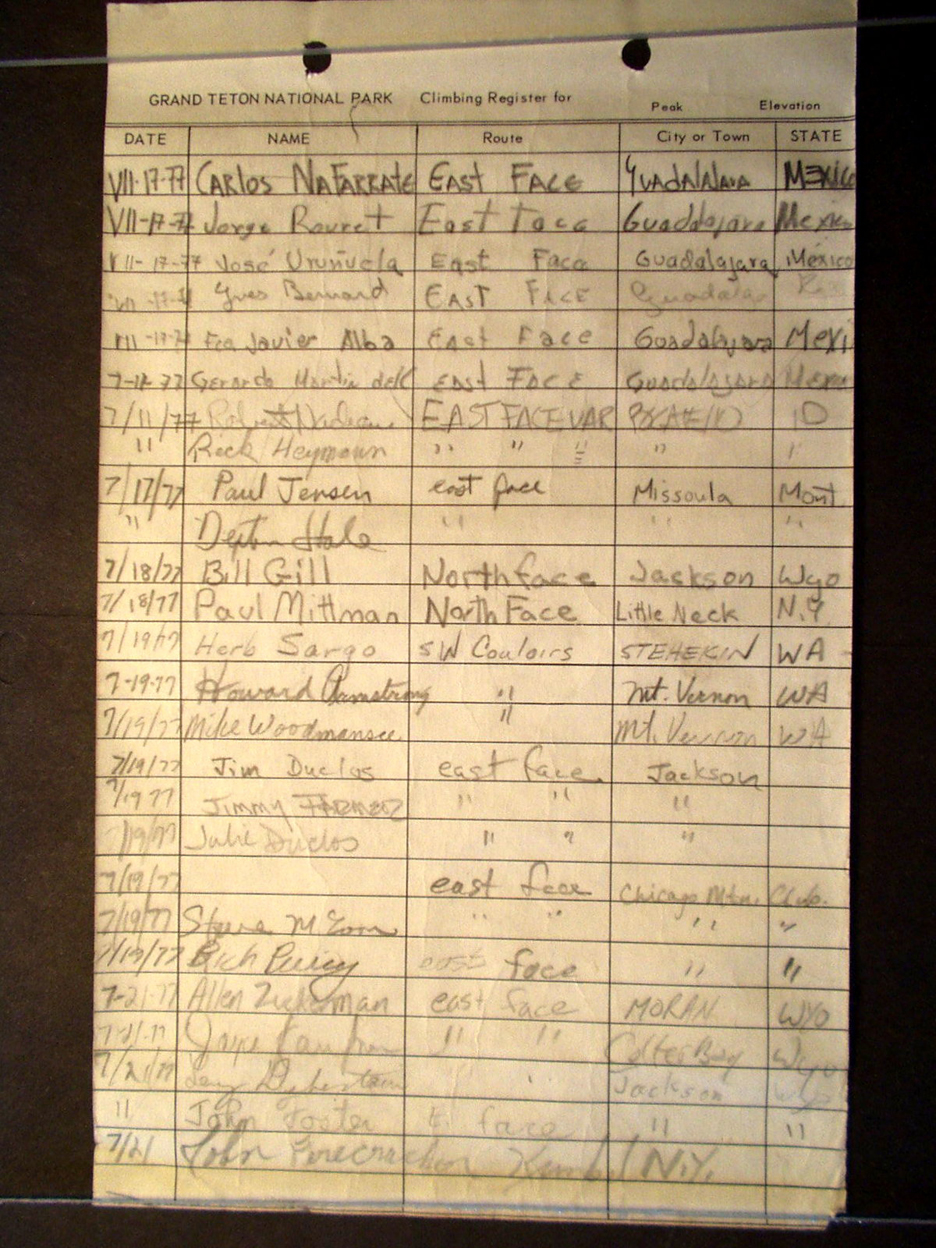 GRAND TETON NATIONAL PARK Climbing Register for Peak Elevation
DATE NAME Route City or Town STATE
VII-17-77 CARLOS NAFARRATE EAST FACE GUADALAJARA MEXICO
VII-17-77 Jorge East Face Guadalajara Mexico
VII-17-77 José Uruñuela East Face Guadalajara México
Yves Bernard EAST FACE Guadalajara
VII-17-77 Fco Javier Alba East Face Guadalajara Mexi
7-17-77 Gerardo Martin del East Face Guadalajara Mexico
7/11/77 Robert EAST FACE VAR ID
" Rick Heymann " " " " "
7/17/77 Paul Jensen east face Missoula Mont.
" Hale " " "
7/18/77 Bill Gill North face Jackson Wyo
7/18/77 Paul Mittman North Face Little Neck N.Y.
7/19/77 Herb Sargo SW Couloirs STEHEKIN WA
7-19-77 Howard Armstrong " Mt. Vernon WA
7/19/77 Mike Woodmansee " Mt. Vernon WA
7/19/77 Jim Duclos east face Jackson
7/19 77 Jimmy " " "
7/19/77 Julie Duclos " " "
7/19/77 east face Chicago Mtn. Club.
7/19/77 Steve " " " "
7/19/77 Rich east face " "
7-21-77 Allen Zuckerman east face MORAN WYO
7-21-77 " " Colter Bay Wyo
7/21/77 " Jackson Wyo
" John Foster E. face " "
7/21 John N.Y.